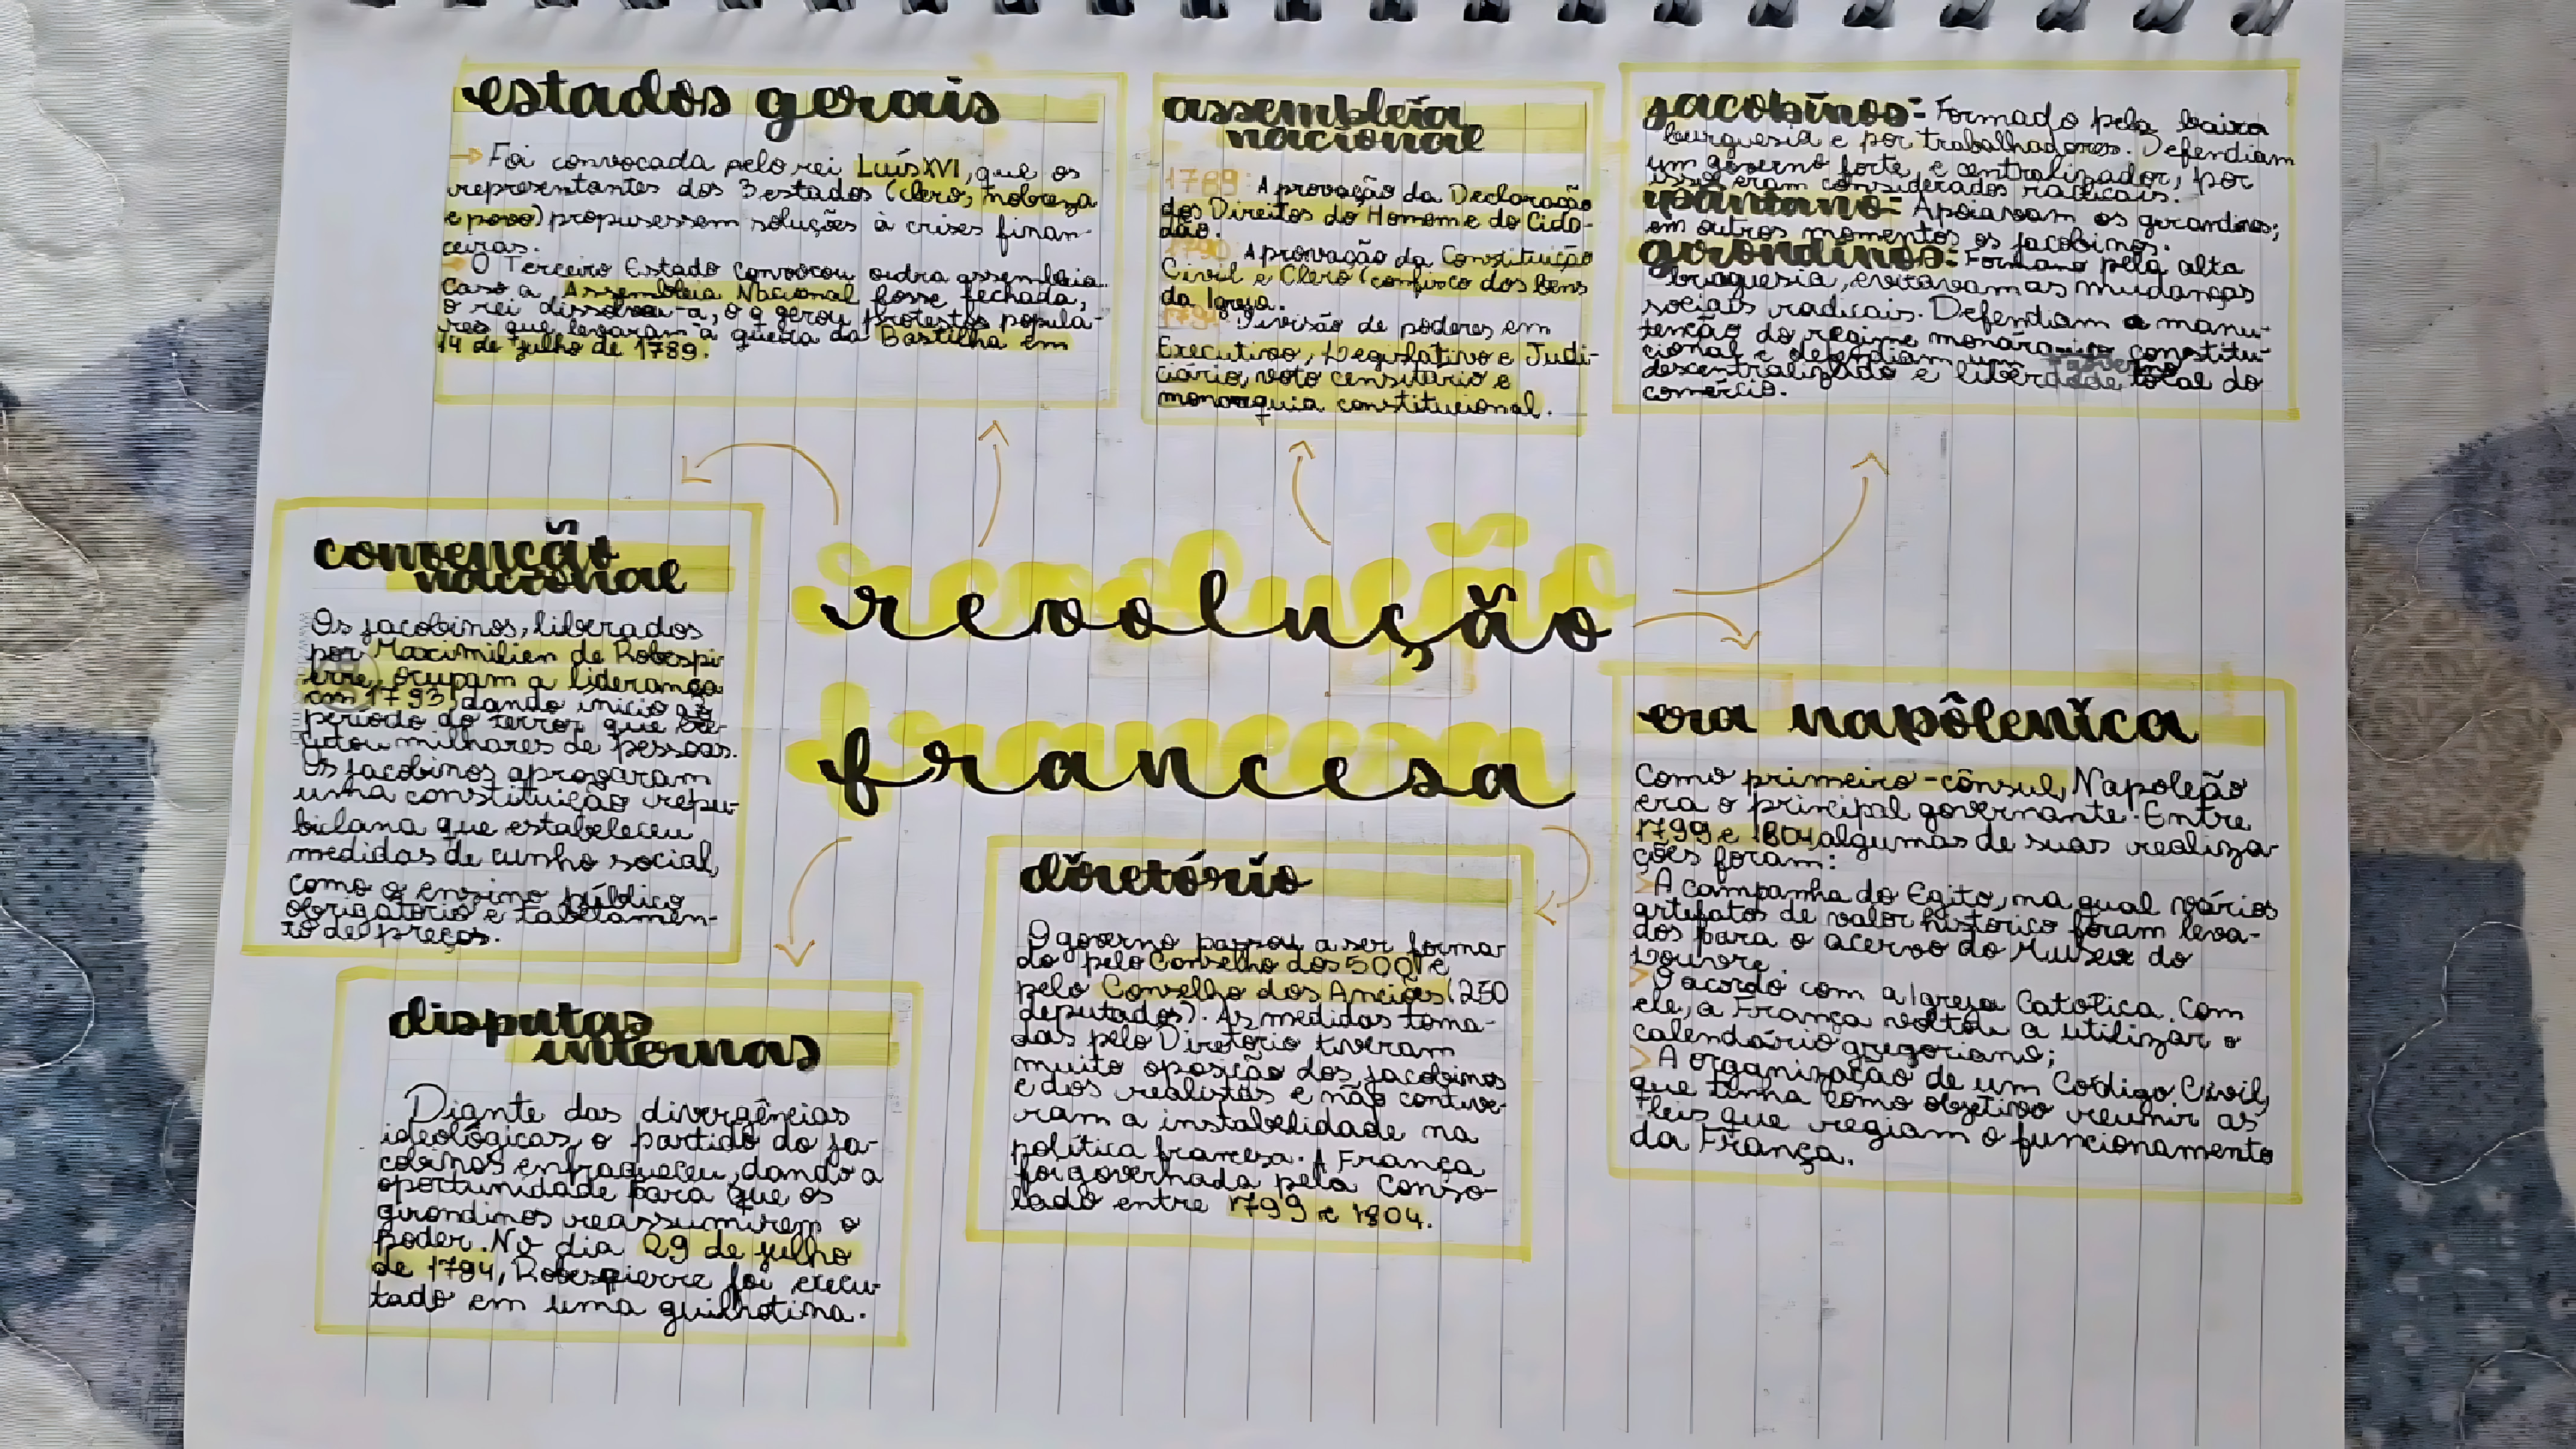 estados gerais
→ Foi convocada pelo rei Luís XVI, que os
representantes dos 3 estados (clero, nobreza
e povo) propusessem soluções à crises finan-
ceiras.
→ O Terceiro Estado convocou outra assembleia
caso a Assembleia Nacional fosse fechada,
o rei dissolveu-a, o q gerou protestos popula-
res que levaram à queda da Bastilha em
14 de julho de 1789.
assembleia
nacional
1789: Aprovação da Declaração
dos Direitos do Homem e do Cida-
dão.
1790: Aprovação da Constituição
Civil e Clero (confisco dos bens
da Igreja.
Divisão de poderes em
Executivo, Legislativo e Judi-
ciário, voto censitário e
monarquia constitucional.
jacobinos: Formado pela baixa
burguesia e por trabalhadores. Defendiam
um governo forte e centralizador, por
isso eram considerados radicais.
pântano: Apoiavam os girondinos;
em outros momentos os jacobinos.
girondinos: Formano pela alta
burguesia, evitavam as mudanças
sociais radicais. Defendiam a manu-
tenção do regime monárquico constitu-
cional e defendiam um governo
descentralizado e liberdade total do
comércio.
convenção
nacional
Os jacobinos, liberados
por Maximilien de Robespi
erre, ocupam a liderança
em 1793, dando início ao
período do terror que
milhares de pessoas.
Os jacobinos aprovaram
uma constituição repu-
bilcana que estabeleceu
medidas de cunho social,
como o ensino público
obrigatório e tabelamen-
to de preços.
revolução
francesa
era napôlenica
Como primeiro-cônsul, Napoleão
era o principal governante. Entre
1799 e 1804, algumas de suas realiza-
ções foram:
> A campanha do Egito, na qual vários
artefatos de valor histórico foram leva-
dos para o acervo do Museu do
Louvre.
> O acordo com a Igreja Católica. Com
ele, a França voltou a utilizar o
calendário gregoriano;
> A organização de um Código Civil,
que tinha como objetivo reunir as
leis que regiam o funcionamento
da França.
diretório
O governo passou a ser forma
do pelo Conselho dos 500 e
pelo Conselho dos Anciãos (250
deputados). As medidas toma-
das pelo Diretório tiveram
muito oposição dos jacobinos
e dos realistas e não contive-
ram a instabelidade na
política francesa. A França
foi governada pela Conso-
lado entre 1799 e 1804.
disputas
internas
Diante das divergências
ideológicas, o partido do ja-
cobinos enfraqueceu, dando a
oportunidade para que os
girondinos reassumirem o
poder. No dia 29 de julho
de 1794, Robespierre foi execu-
tado em uma guilhotina.